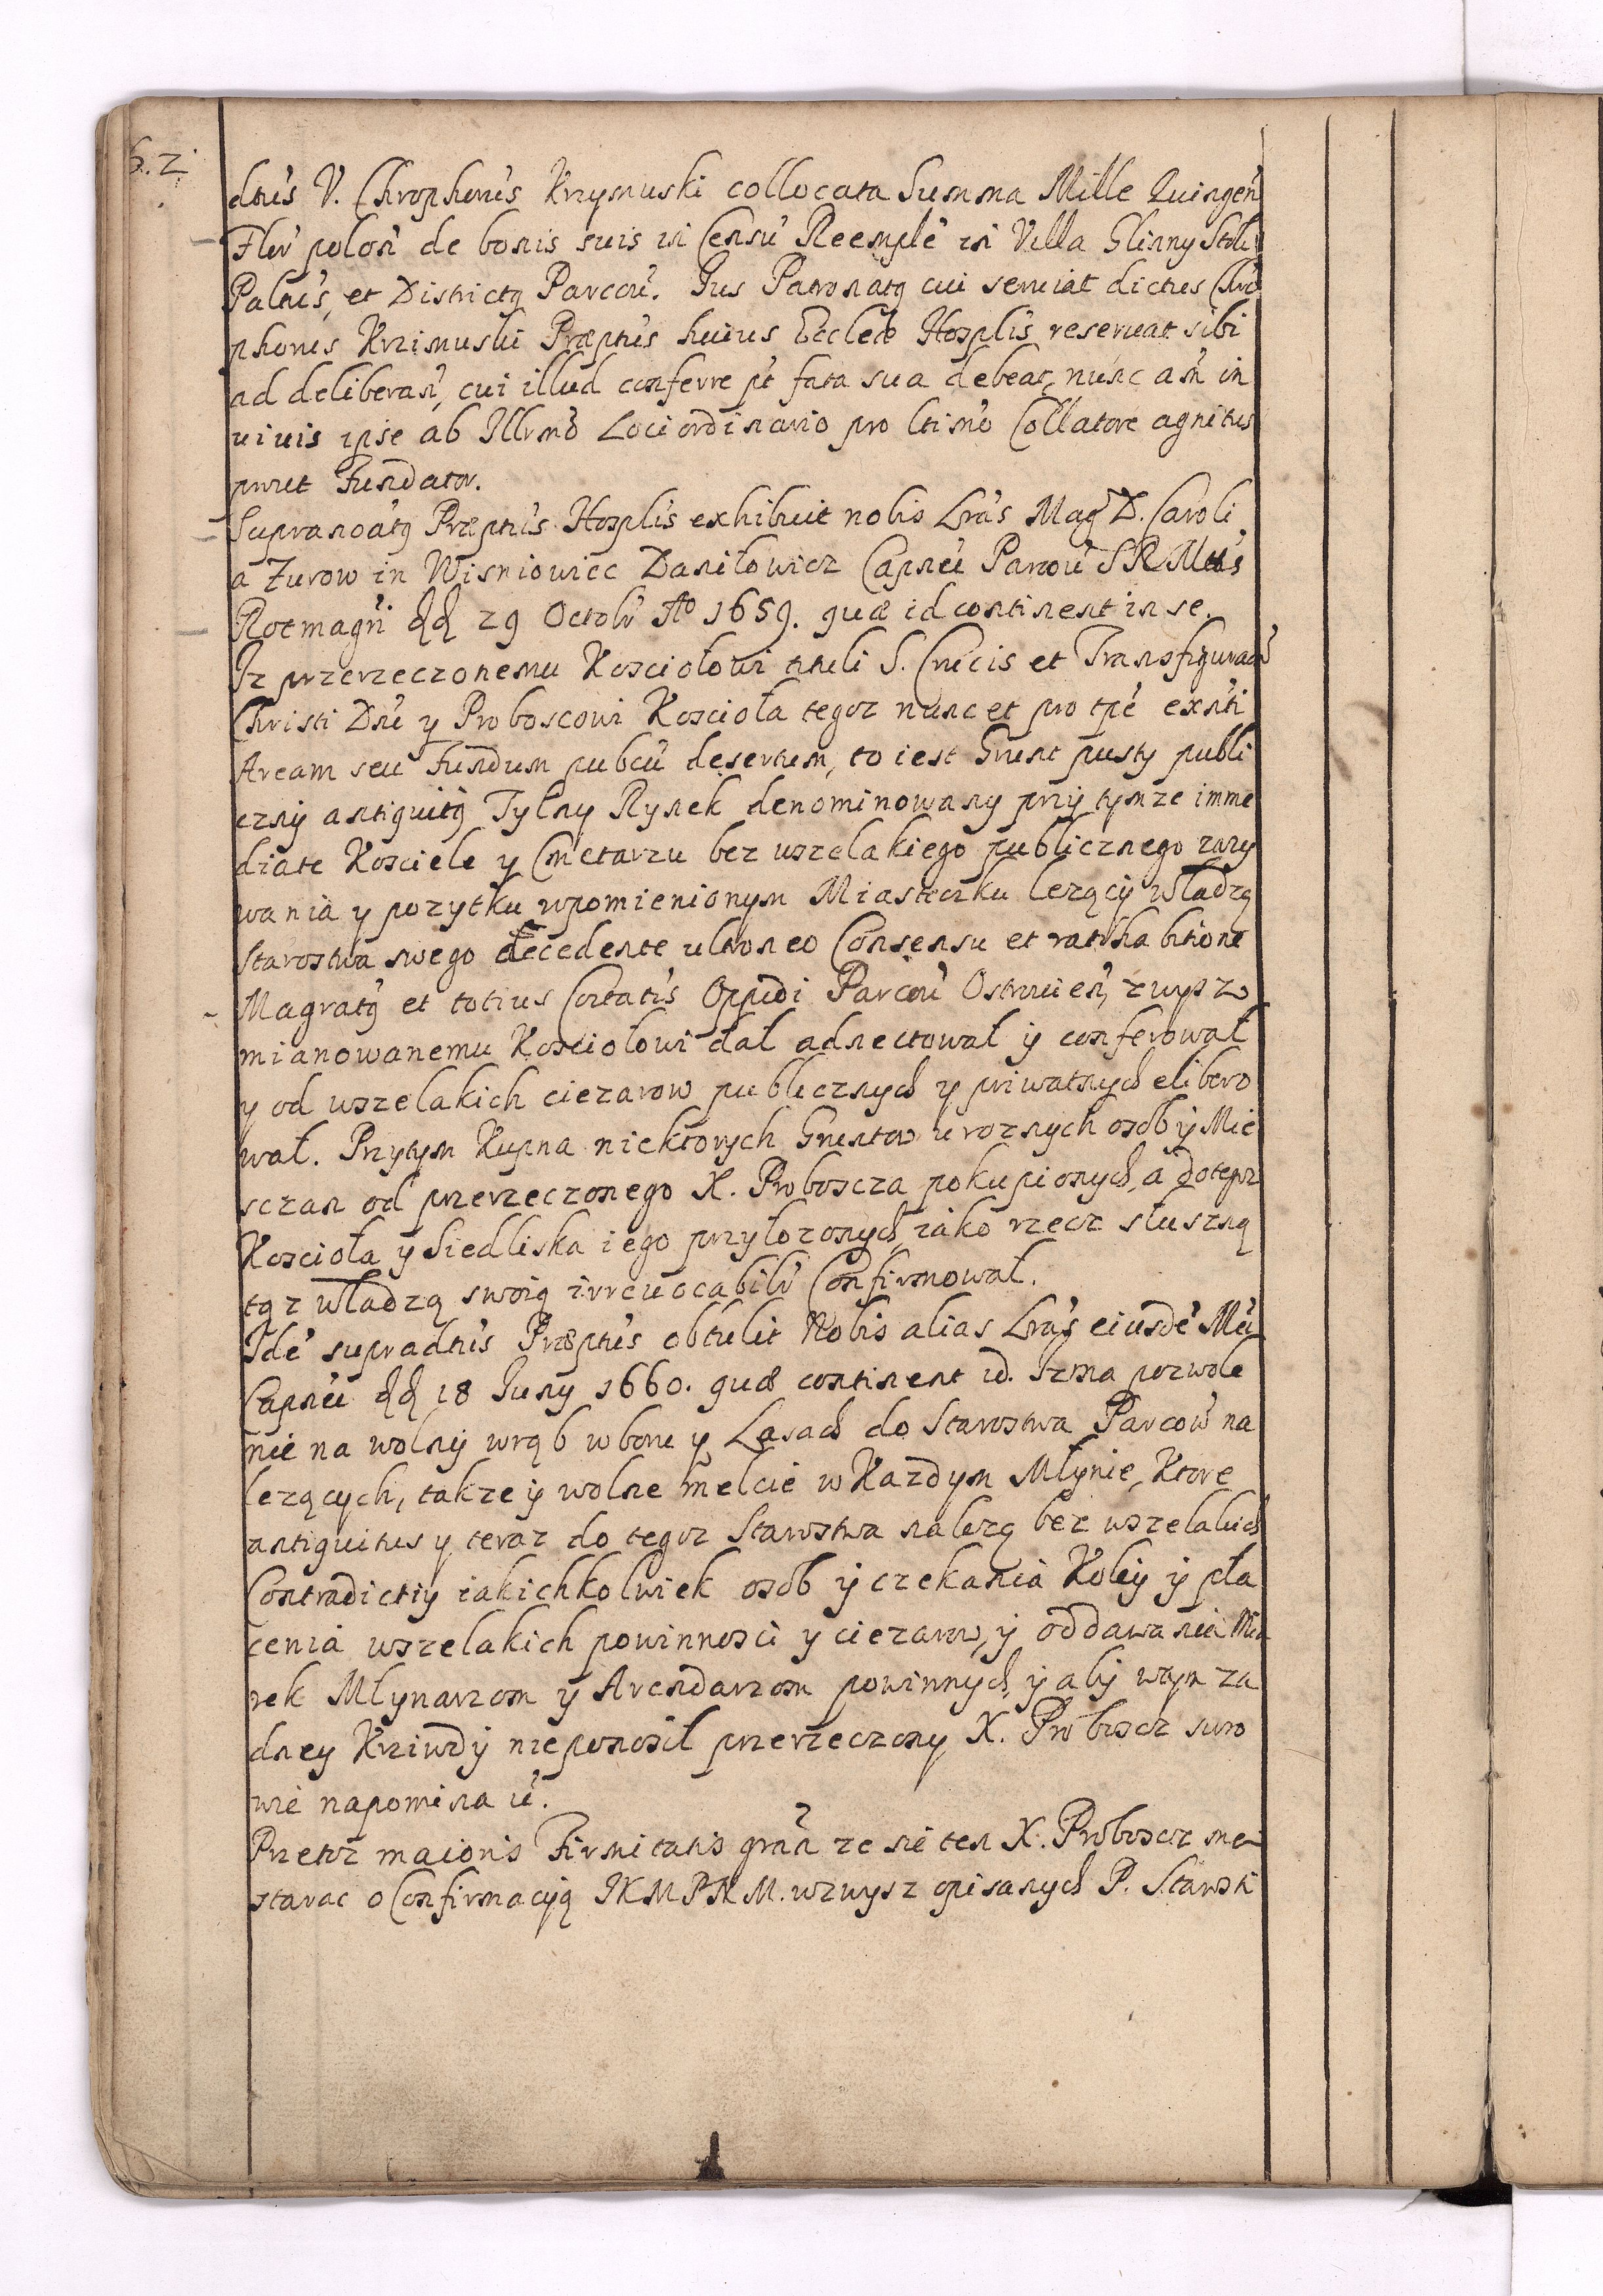 6.2.
dtus V. Chrophorus Krzymuski collocata Summa Mille Quingen
Flor polon de bonis suis in Censu Reemple in Villa Glinny Stok
Paltus, et Districtq Parcou. Jus Patronatq cui seruiat dictus Chro
phorus Krzimuski Præptus huius Ecclæ Hosplis reseruat sibi
ad deliberan, cui illud conferre pt fata sua debeat, nunc ain in
uiuis ipse ab Illrmo Loci ordinario pro ltimo Collatore agnitus
prout Fundator.
Supranoatq Præptus Hosplis exhibuit nobis Lras Mag D. Caroli
a Zurow in Wisniowiec Daniłowicz Capnei Parcou S R Mtis
Rotmagri dd 29 Octobr Ao 1659. quæ id continent in se.
Iz przerzeczonemu Kosciołowi tituli S. Crucis et Transfigurao
Christi Dni y Proboscowi Kosciola tegoz nunc et pro tpe exnti
Aream seu Fundum pubcu desertum, to iest Grunt pusty publi
czny antiquitq Tylny Rynek denominowany przy tymze imme
diate Kosciele y Cmetarzu bez wszelakiego publicznego zazy
wania y pozytku wpomienionym Miasteczku lezący władzą
starostwa swego accedente ultroneo Consensu et ratihabitione
Magratq et totius Coitatis Oppidi Parcou Ostrouien, zwysz
mianowanemu Kosciołowi dał adnectował y conferował
y od wszelakich ciezarow publicznych y priwatnych elibero
wał. Przytym Kupna niektorych Gruntow u roznych osob y Mie
sczan od przerzeczonego X. Proboscza pokupionych, a do tegoz
Koscioła y Siedliska iego przyłozonych, iako rzecz słuszną
tąz władzą swoią irreuocabilr Confirmował.
Ide supradtus Præptus obtulit Nobis alias Lras eiusde Mci
Capnei dd 18 Juny 1660. quæ continent id. Iz ma pozwole
nie na wolny wrąb w boru y Lasach do Starostwa Parcow na
lezących, takze y wolne melcie w Kazdym Młynie, Ktore
antiquitus y teraz do tegoz Starostwa nalezą bez wszelakich
Contradictiy iakichkolwiek osob y czekania Koliy y pła
cenia wszelakich powinnosci y ciezarow, y oddawania Mia
rek Młynarzom y Arendarzom powinnych, y aby wtym za
dney Krziwdy nieponosił przerzeczony X. Proboscz suro
wie napomina ie.
Przetoz maioris Firmitatis gran ze sie ten X. Proboscz ma
starac o Confirmacyą JKMPNM. wzwysz opisanych P. Starosti